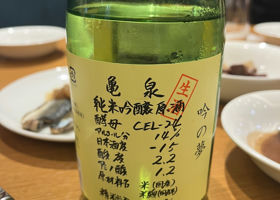 亀泉
生
純米吟醸原酒
吟の夢
酵母 CEL-24
アルコール分 14.4
日本酒度 -15
酸度 2.2
アミノ酸 1.2
原材料名 米(国産)